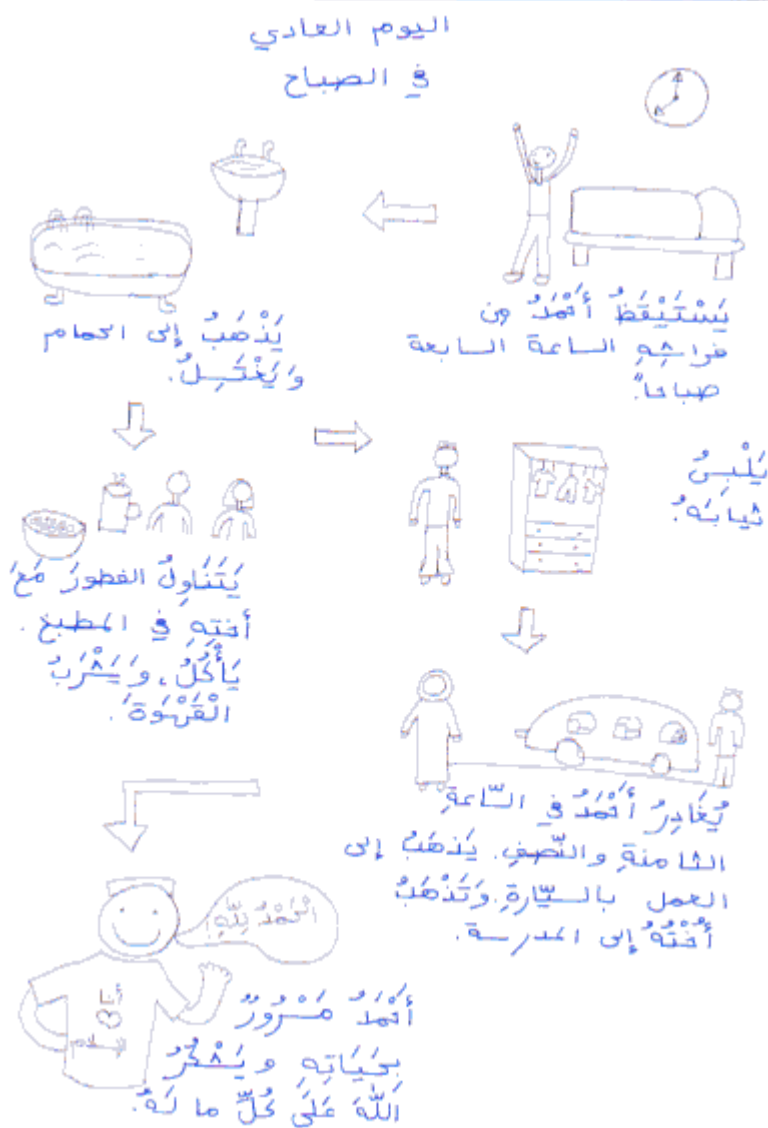 اليوم العادي
في الصباح
يَسْتَيْقَظُ أَحْمَدُ من
فراشِهِ الساعة السابعة
صباحاً.
يَذْهَبُ إلى الحمام
وَيَغْتَسِلُ.
يَتَنَاوِلُ الفطورَ مَعَ
أختِهِ في المطبخ.
يَأْكُلُ، وَيَشْرَبُ
الْقَهْوَةَ.
يَلْبِسُ
ثيابَهُ.
يُغَادِرُ أَحْمَدُ في السَّاعَةِ
الثامنةِ والنّصفِ. يَذهَبُ إلى
العمل بالسيّارةِ. وَتَذْهَبُ
أُخْتُهُ إلى المدرسة.
الْحَمْدُ لِلّهِ!
أنا
سلام
أَحْمَدُ مَسْرُورٌ
بِحَيَاتِهِ ويَشْكُرُ
اللّهَ عَلَى كُلِّ ما لَهُ.